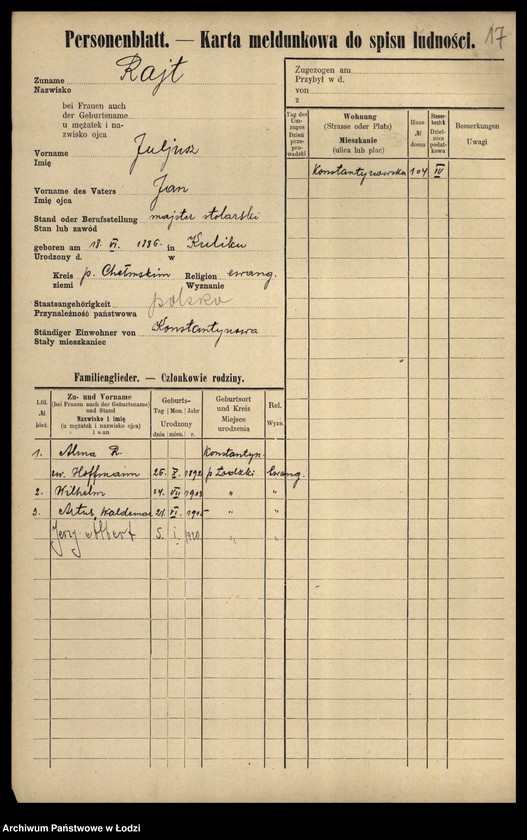 17
Personenblatt. — Karta meldunkowa do spisu ludności.
Zuname Rajt
Nazwisko
bei Frauen auch
der Geburtsname
u mężatek i na-
zwisko ojca
Vorname Juljusz
Imię
Vorname des Vaters Jan
Imię ojca
Stand oder Berufsstellung majster stolarski
Stan lub zawód
geboren am 18. VI. 1886. in Kuliku
Urodzony d. w
Kreis p. Chełmskim Religion ewang.
ziemi Wyznanie
Staatsangehörigkeit polska
Przynależność państwowa
Ständiger Einwohner von Konstantynowa
Stały mieszkaniec
Zugezogen am
Przybył w d.
von
z
Tag des Um-zuges Dzień prze-pro-wadzki
Wohnung
(Strasse oder Platz)
Mieszkanie
(ulica lub plac)
Haus-
№
domu
Steuer-bezirk Dziel-nica podat-kowa
Bemerkungen
Uwagi
Konstantynowska 104 IV
Familienglieder. — Członkowie rodziny.
Lfd. № bież.
Zu- und Vorname
(bei Frauen auch der Geburtsname)
und Stand
Nazwisko i imię
(u mężatek i nazwisko ojca)
i stan
Geburts-
Tag Mon. Jahr
Urodzony
dnia mies. r.
Geburtsort
und Kreis
Miejsce
urodzenia
Rel.
Wyzn.
1. Alma R. Konstantyn.
zw. Hoffmann 26. X. 1892 p Łodzki Ewang.
2. Wilhelm 24. VII 1903 " "
3. Artur, Waldemar 21. VI. 1905 " "
Jerzy Albert 5. I. 1920 "
Archiwum Państwowe w Łodzi